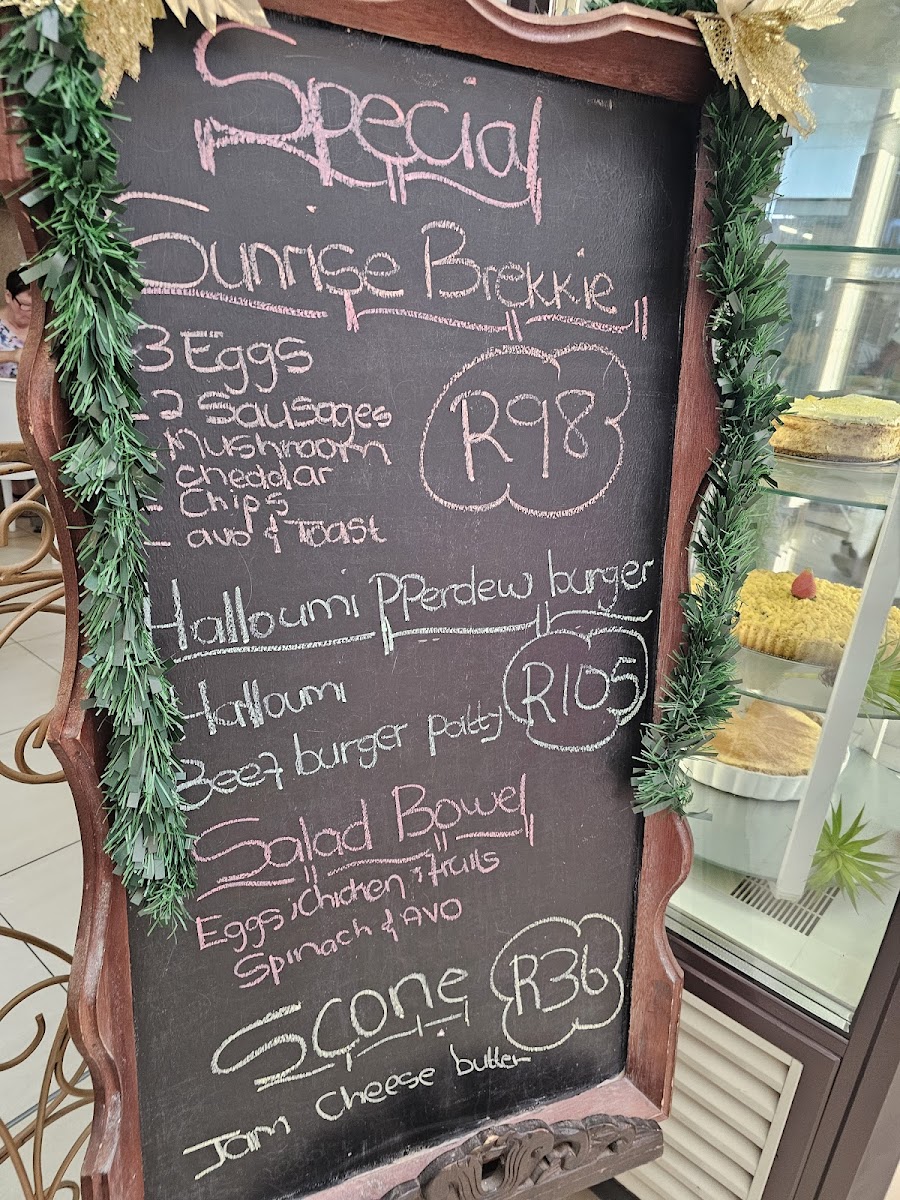 Special
Sunrise Brekkie
3 Eggs
- 2 Sausages
Mushroom
R98
cheddar
- Chips
- avo & Toast
Halloumi PPerdew burger
Halloumi
R105
Beef burger patty
Salad Bowel
Eggs, Chicken, fruits
Spinach & AVO
Scone
R36
Jam Cheese butter